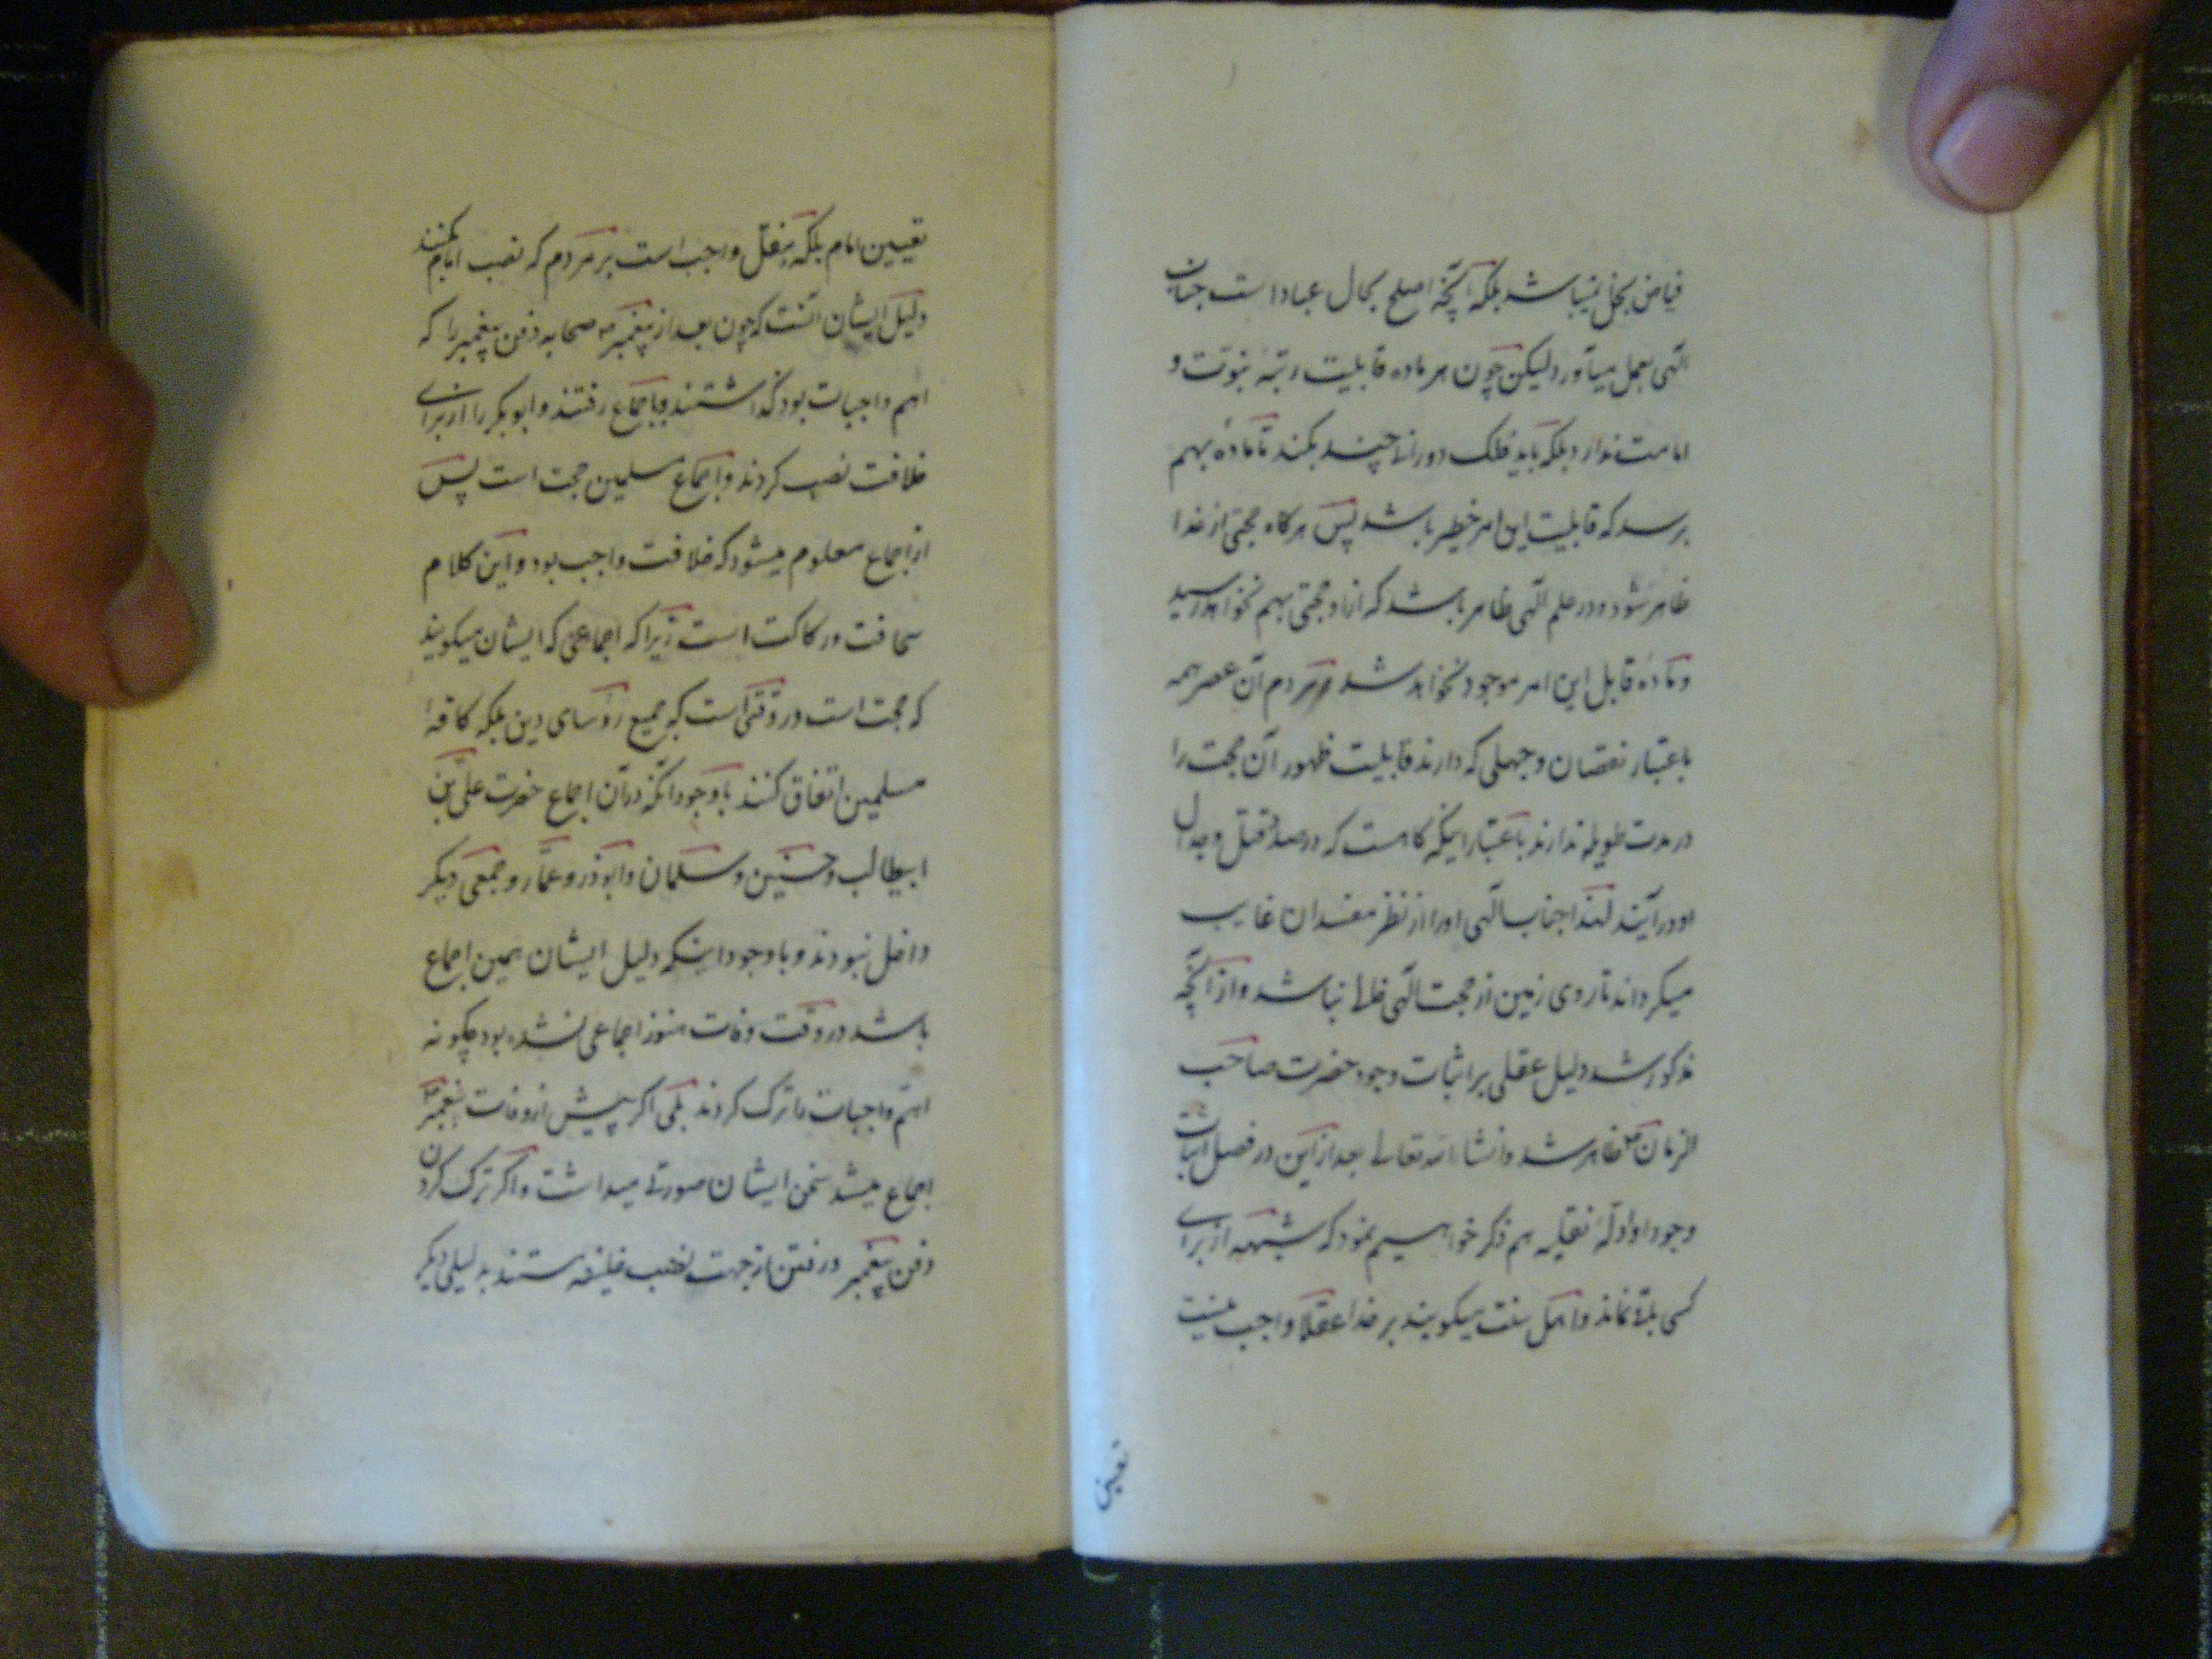 فیاض بخل نمیباشد بلکه آنچه اصلح بحال عباد است جناب
الهی بعمل میآورد لیکن چون هر ماده قابلیت رتبهٔ نبوت و
امامت ندارد بلکه باید فلک دورانی چند بکند تا مادهٔ بهم
برسد که قابلیت این امر خطیر باشد پس هرگاه حجتی از خدا
ظاهر شود و در علم الهی ظاهر باشد که ازاو حجتی بهم نخواهد رسید
و مادهٔ قابل این امر موجود نخواهد شد و مردم آن عصر همه
باعتبار نقصان و جهلی که دارند قابلیت ظهور آن حجت را
در مدت طویله ندارند باعتبار اینکه که در صدد قتل و جدال
او درآیند لهذا جناب الهی اورا از نظر مفسدان غایب
میگرداند تا روی زمین از حجت الهی خالی نباشد و از آنچه
مذکور شد دلیل عقلی بر اثبات وجود حضرت صاحب
الزمان ظاهر شد و انشاء الله تعالی بعد از این در فصل اثبات
وجود او ادلهٔ نقلیه هم ذکر خواهیم نمود که شبهه از برای
کسی باقی نماند و اهل سنت میگویند بر خدا عقلا واجب نیست
تعیین
تعیین امام بلکه بنقل واجب است بر مردم که نصب امام بکنند
دلیل ایشان آنست که چون بعد از پیغمبر صحابه دفن پیغمبر را که
اهم واجبات بود گذاشتند و باجماع رفتند و ابوبکر را از برای
خلافت نصب کردند و اجماع مسلمین حجت است پس
از اجماع معلوم میشود که خلافت واجب بود و این کلام
سخافت و رکاکت است زیرا که اجماعی که ایشان میگویند
که حجت است در وقتی است که جمیع رؤسای دین بلکه کافهٔ
مسلمین اتفاق کنند با وجود آنکه در آن اجماع حضرت علی بن
ابیطالب و حسنین و سلمان و ابوذر و عمار و جمعی دیگر
داخل نبودند و با وجود اینکه دلیل ایشان همین اجماع
باشد در وقت وفات هنوز اجماعی نشده بود چگونه
اهم واجبات را ترک کردند بلی اگر پیش از وفات پیغمبر
اجماع میشد سخن ایشان صورتی میداشت و اگر ترک کردن
دفن پیغمبر و رفتن از جهت نصب خلیفه مستند بدلیلی دیگر